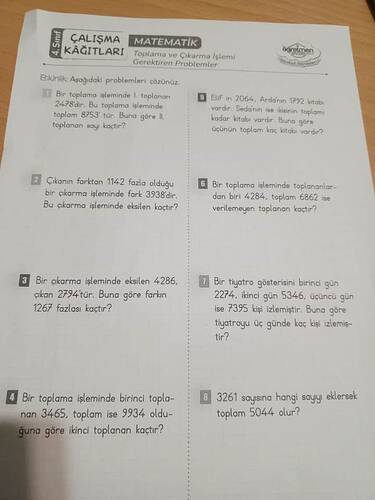 4. Sınıf
ÇALIŞMA
KÂĞITLARI
MATEMATİK
Toplama ve Çıkarma İşlemi
Gerektiren Problemler
öğretmen
Etkinlik: Aşağıdaki problemleri çözünüz.
1 Bir toplama işleminde 1. toplanan
2478'dir. Bu toplama işleminde
toplam 8753' tür. Buna göre II.
toplanan sayı kaçtır?
2 Çıkanın farktan 1142 fazla olduğu
bir çıkarma işleminde fark 3938'dir.
Bu çıkarma işleminde eksilen kaçtır?
3 Bir çıkarma işleminde eksilen 4286,
çıkan 2794'tür. Buna göre farkın
1267 fazlası kaçtır?
4 Bir toplama işleminde birinci topla-
nan 3465, toplam ise 9934 oldu-
ğuna göre ikinci toplanan kaçtır?
5 Elif in 2064, Arda'nın 1792 kitabı
vardır. Seda'nın ise ikisinin toplamı
kadar kitabı vardır. Buna göre
üçünün toplam kaç kitabı vardır?
6 Bir toplama işleminde toplananlar-
dan biri 4284, toplam 6862 ise
verilemeyen toplanan kaçtır?
7 Bir tiyatro gösterisini birinci gün
2274, ikinci gün 5346, üçüncü gün
ise 7395 kişi izlemiştir. Buna göre
tiyatroyu üç günde kaç kişi izlemiş-
tir?
8 3261 sayısına hangi sayıyı eklersek
toplam 5044 olur?